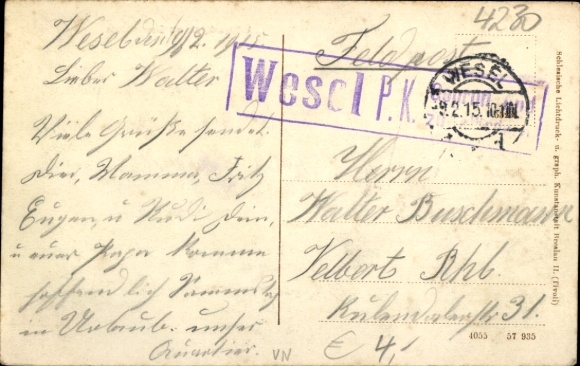 4230
Wesel den 9/2. 1915
Lieber Walter
Viele Grüße sendet
Dir, Mamma, Fritz
Eugen, u Rudi Dein,
u euer Papa komme
hoffendlich Samstag
in Urlaub. unser
Quartier.
VN
Feldpost
Wesel P.K.
WESEL
9.2.15. 10-11
Herrn
Walter Buschmann
Velbert Rhl.
31.
€ 4,-
4055 57 935
Schlesische Lichtdruck- u. graph. Kunstanstalt Breslau II. (Tivoli)